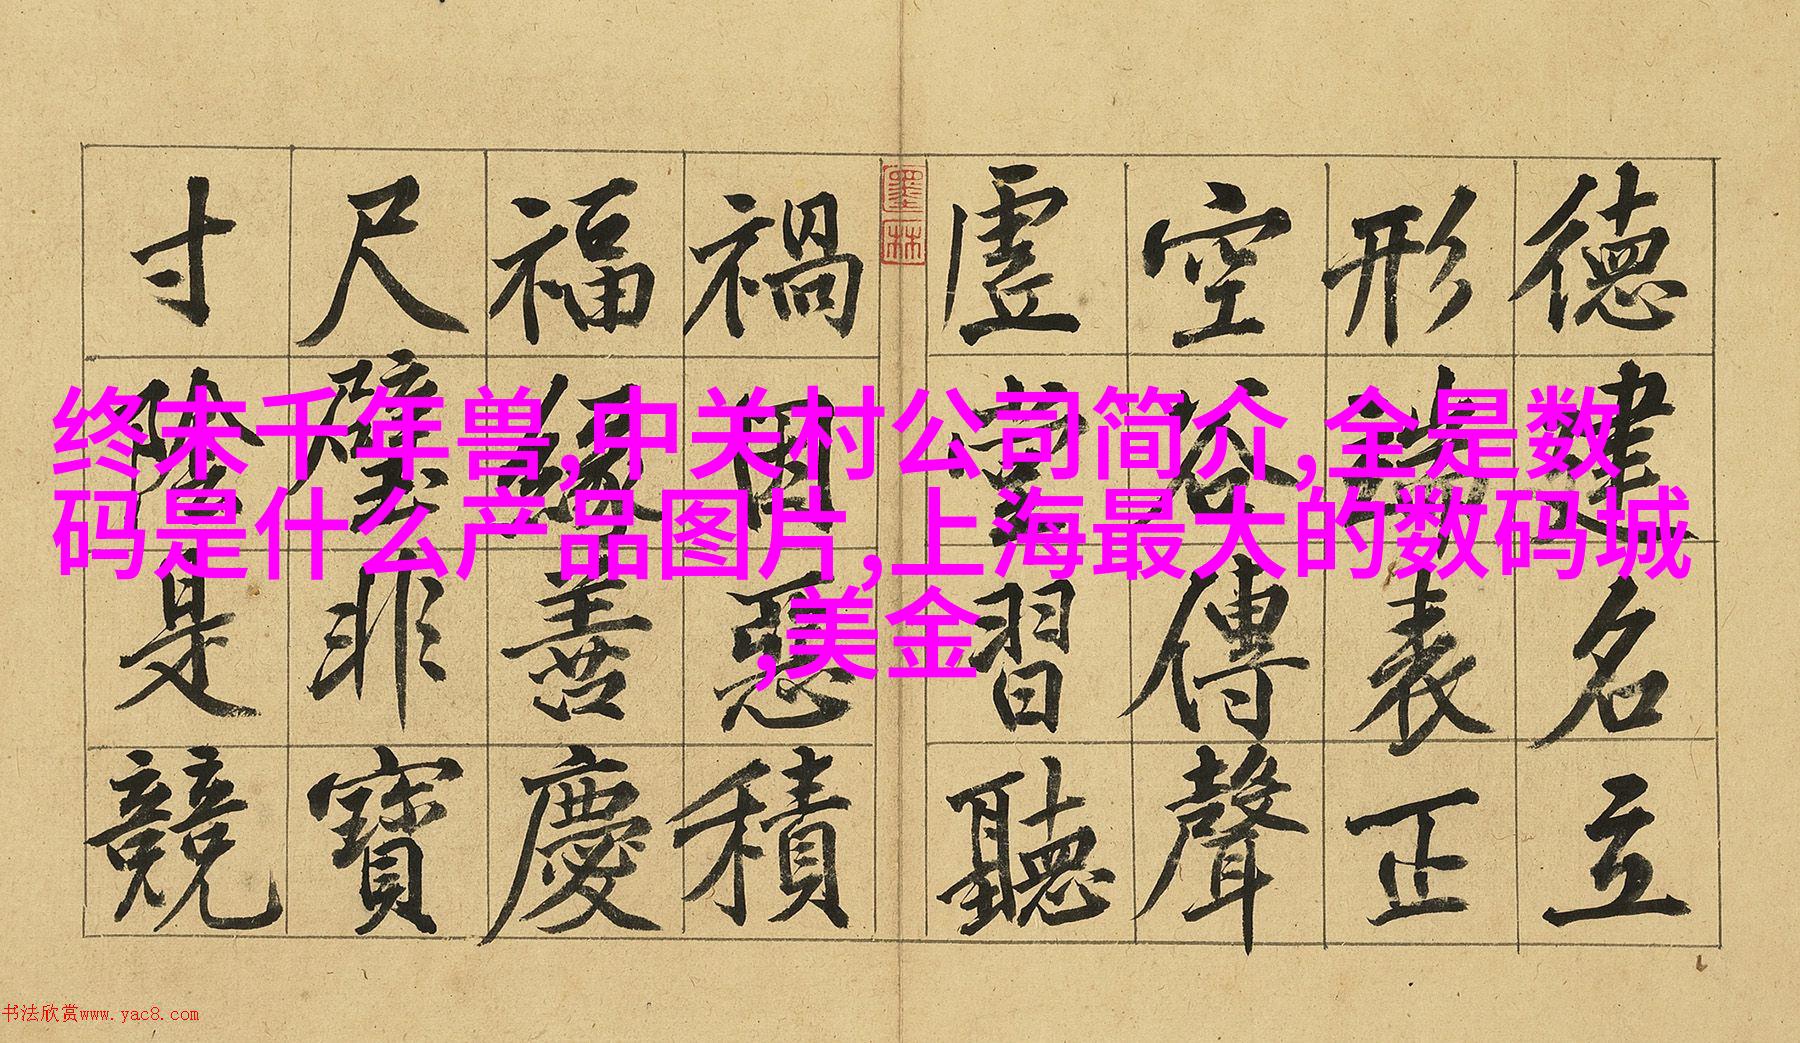 德建名立
形端表正
空谷傳聲
虛堂習聽
墨林
禍因惡積
福緣善慶
尺璧非寶
寸陰是競
终末千年兽,中关村公司简介,全是数
码是什么产品图片,上海最大的数码城
,美金
书法欣赏www.yac8.com